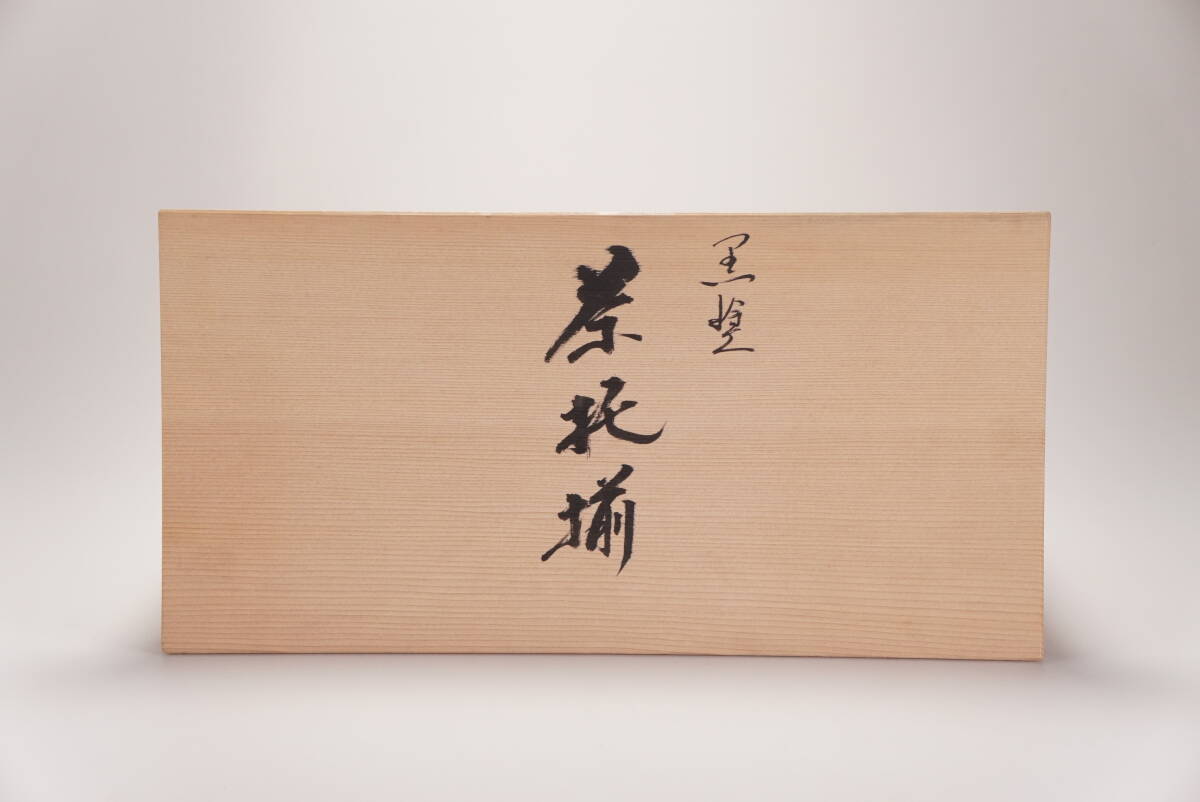 黒塗
茶托揃